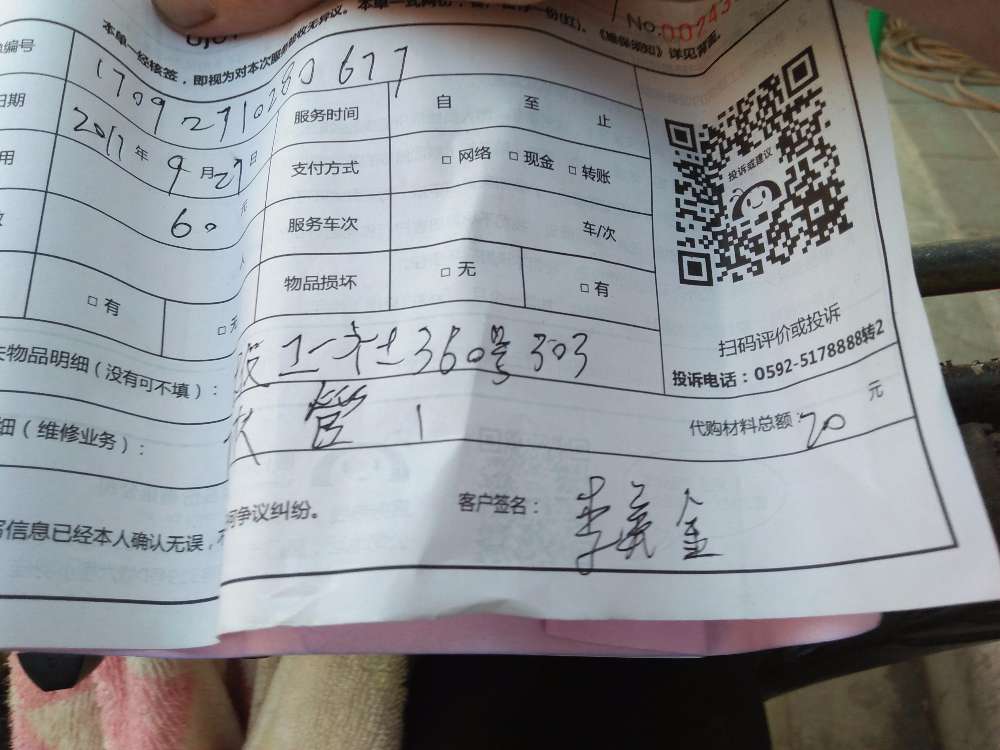 本单一经接签,即视为对本次服务验收无异议。本单一式两份
《维保须知》详见背面。
No.00743
编号 170927102280677 服务时间 自 至 止
日期 2017年9月27日 支付方式 □ 网络 □ 现金 □ 转账
用 60 元 服务车次 车/次
人 物品损坏 □ 无 □ 有
□ 有 □ 无
投诉或建议
扫码评价或投诉
投诉电话:0592-5178888转2
物品明细(没有可不填): 360号303
细(维修业务): 管 1 代购材料总额:20 元
何争议纠纷。
写信息已经本人确认无误, 客户签名:李 金